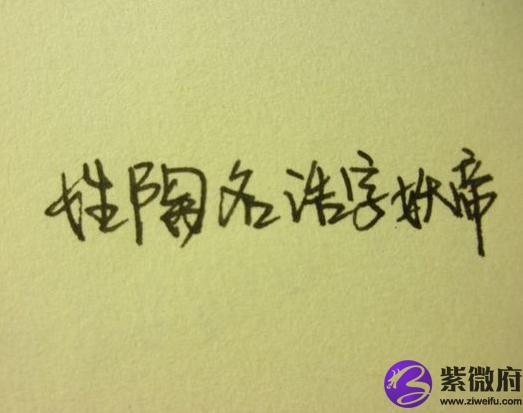 姓陶名浩字妖帝
紫微府
www.ziweifu.com